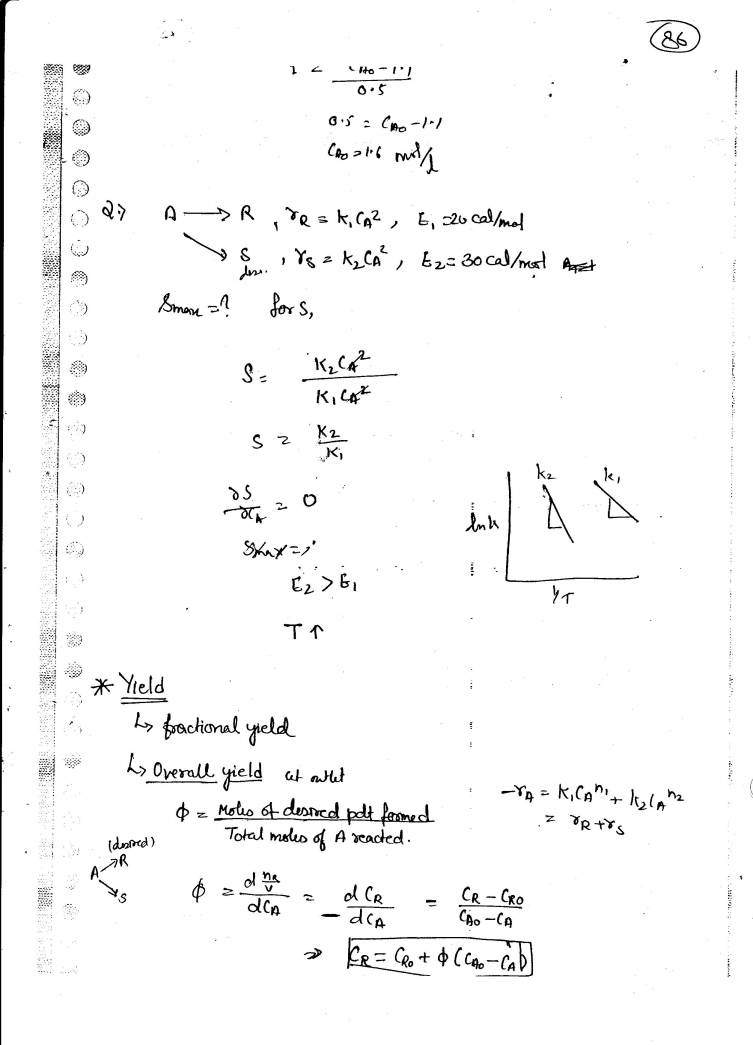 86
1 = (CA0 - 1.1) / 0.5
0.5 = CA0 - 1.1
CA0 = 1.6 mol/l
Q:) A → R , rR = K1CA², E1 = 20 cal/mol
↘ S , rS = K2CA², E2 = 30 cal/mol
des.
Smax = ? for S,
S = K2CA² / K1CA²
S = K2 / K1
∂S / ∂CA = 0
Smax =
E2 > E1
T ↑
k2 k1
ln k
1/T
* Yield
↳ fractional yield
↳ Overall yield at outlet
ϕ = Moles of desired pdt formed / Total moles of A reacted.
-rA = K1CA^n1 + k2CA^n2
= rR + rS
(desired)
A → R
↘ S
ϕ = d(nR/V) / dCA = dCR / -dCA = (CR - CR0) / (CA0 - CA)
⇒ CR = CR0 + ϕ (CA0 - CA)